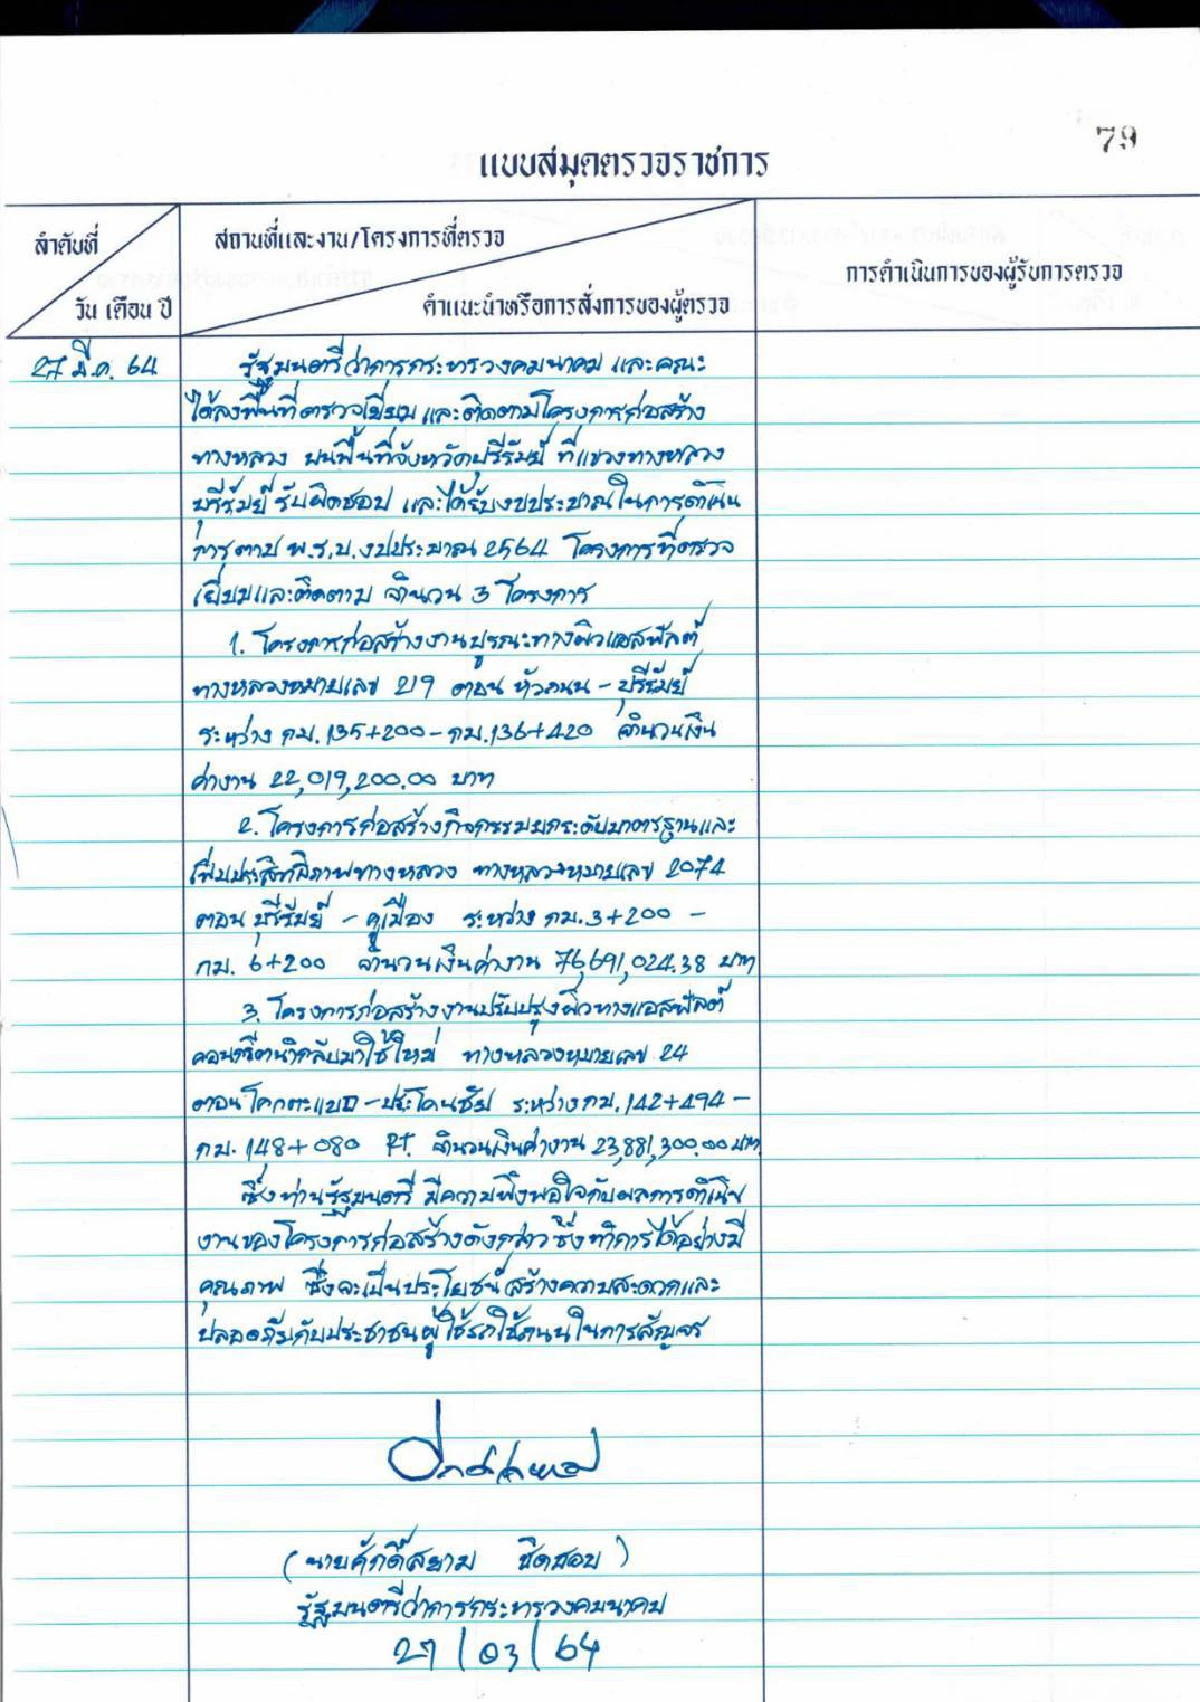 79
แบบสมุดตรวจราชการ
ลำดับที่
วัน เดือน ปี
สถานที่และงาน/โครงการที่ตรวจ
คำแนะนำหรือการสั่งการของผู้ตรวจ
การดำเนินการของผู้รับการตรวจ
27 มี.ค. 64
รัฐมนตรีว่าการกระทรวงคมนาคม และคณะ
ได้ลงพื้นที่ตรวจเยี่ยม และติดตามโครงการก่อสร้าง
ทางหลวง บนพื้นที่จังหวัดบุรีรัมย์ ที่แขวงทางหลวง
บุรีรัมย์ รับผิดชอบ และได้รับงบประมาณในการดำเนิน
การตาม พ.ร.บ.งบประมาณ 2564 โครงการที่ตรวจ
เยี่ยมและติดตาม จำนวน 3 โครงการ
1. โครงการก่อสร้างงานบูรณะทางผิวแอสฟัลต์
ทางหลวงหมายเลข 219 ตอน หัวถนน - บุรีรัมย์
ระหว่าง กม.135+200 - กม.136+420 จำนวนเงิน
ค่างาน 22,019,200.00 บาท
2. โครงการก่อสร้างกิจกรรมยกระดับมาตรฐานและ
เพิ่มประสิทธิภาพทางหลวง ทางหลวงหมายเลข 2074
ตอน บุรีรัมย์ - คูเมือง ระหว่าง กม.3+200 -
กม. 6+200 จำนวนเงินค่างาน 76,691,024.38 บาท
3. โครงการก่อสร้างงานปรับปรุงผิวทางแอสฟัลต์
คอนกรีตนำกลับมาใช้ใหม่ ทางหลวงหมายเลข 24
ตอน โคกตะแบก - ประโคนชัย ระหว่าง กม.142+494 -
กม. 148+080 RT. จำนวนเงินค่างาน 23,881,300.00 บาท
ซึ่งท่านรัฐมนตรี มีความพึงพอใจกับผลการดำเนิน
งานของโครงการก่อสร้างดังกล่าว ซึ่งทำการได้อย่างมี
คุณภาพ ซึ่งจะเป็นประโยชน์สร้างความสะดวกและ
ปลอดภัยกับประชาชนผู้ใช้รถใช้ถนนในการสัญจร
(นายศักดิ์สยาม ชิดชอบ)
รัฐมนตรีว่าการกระทรวงคมนาคม
27/03/64